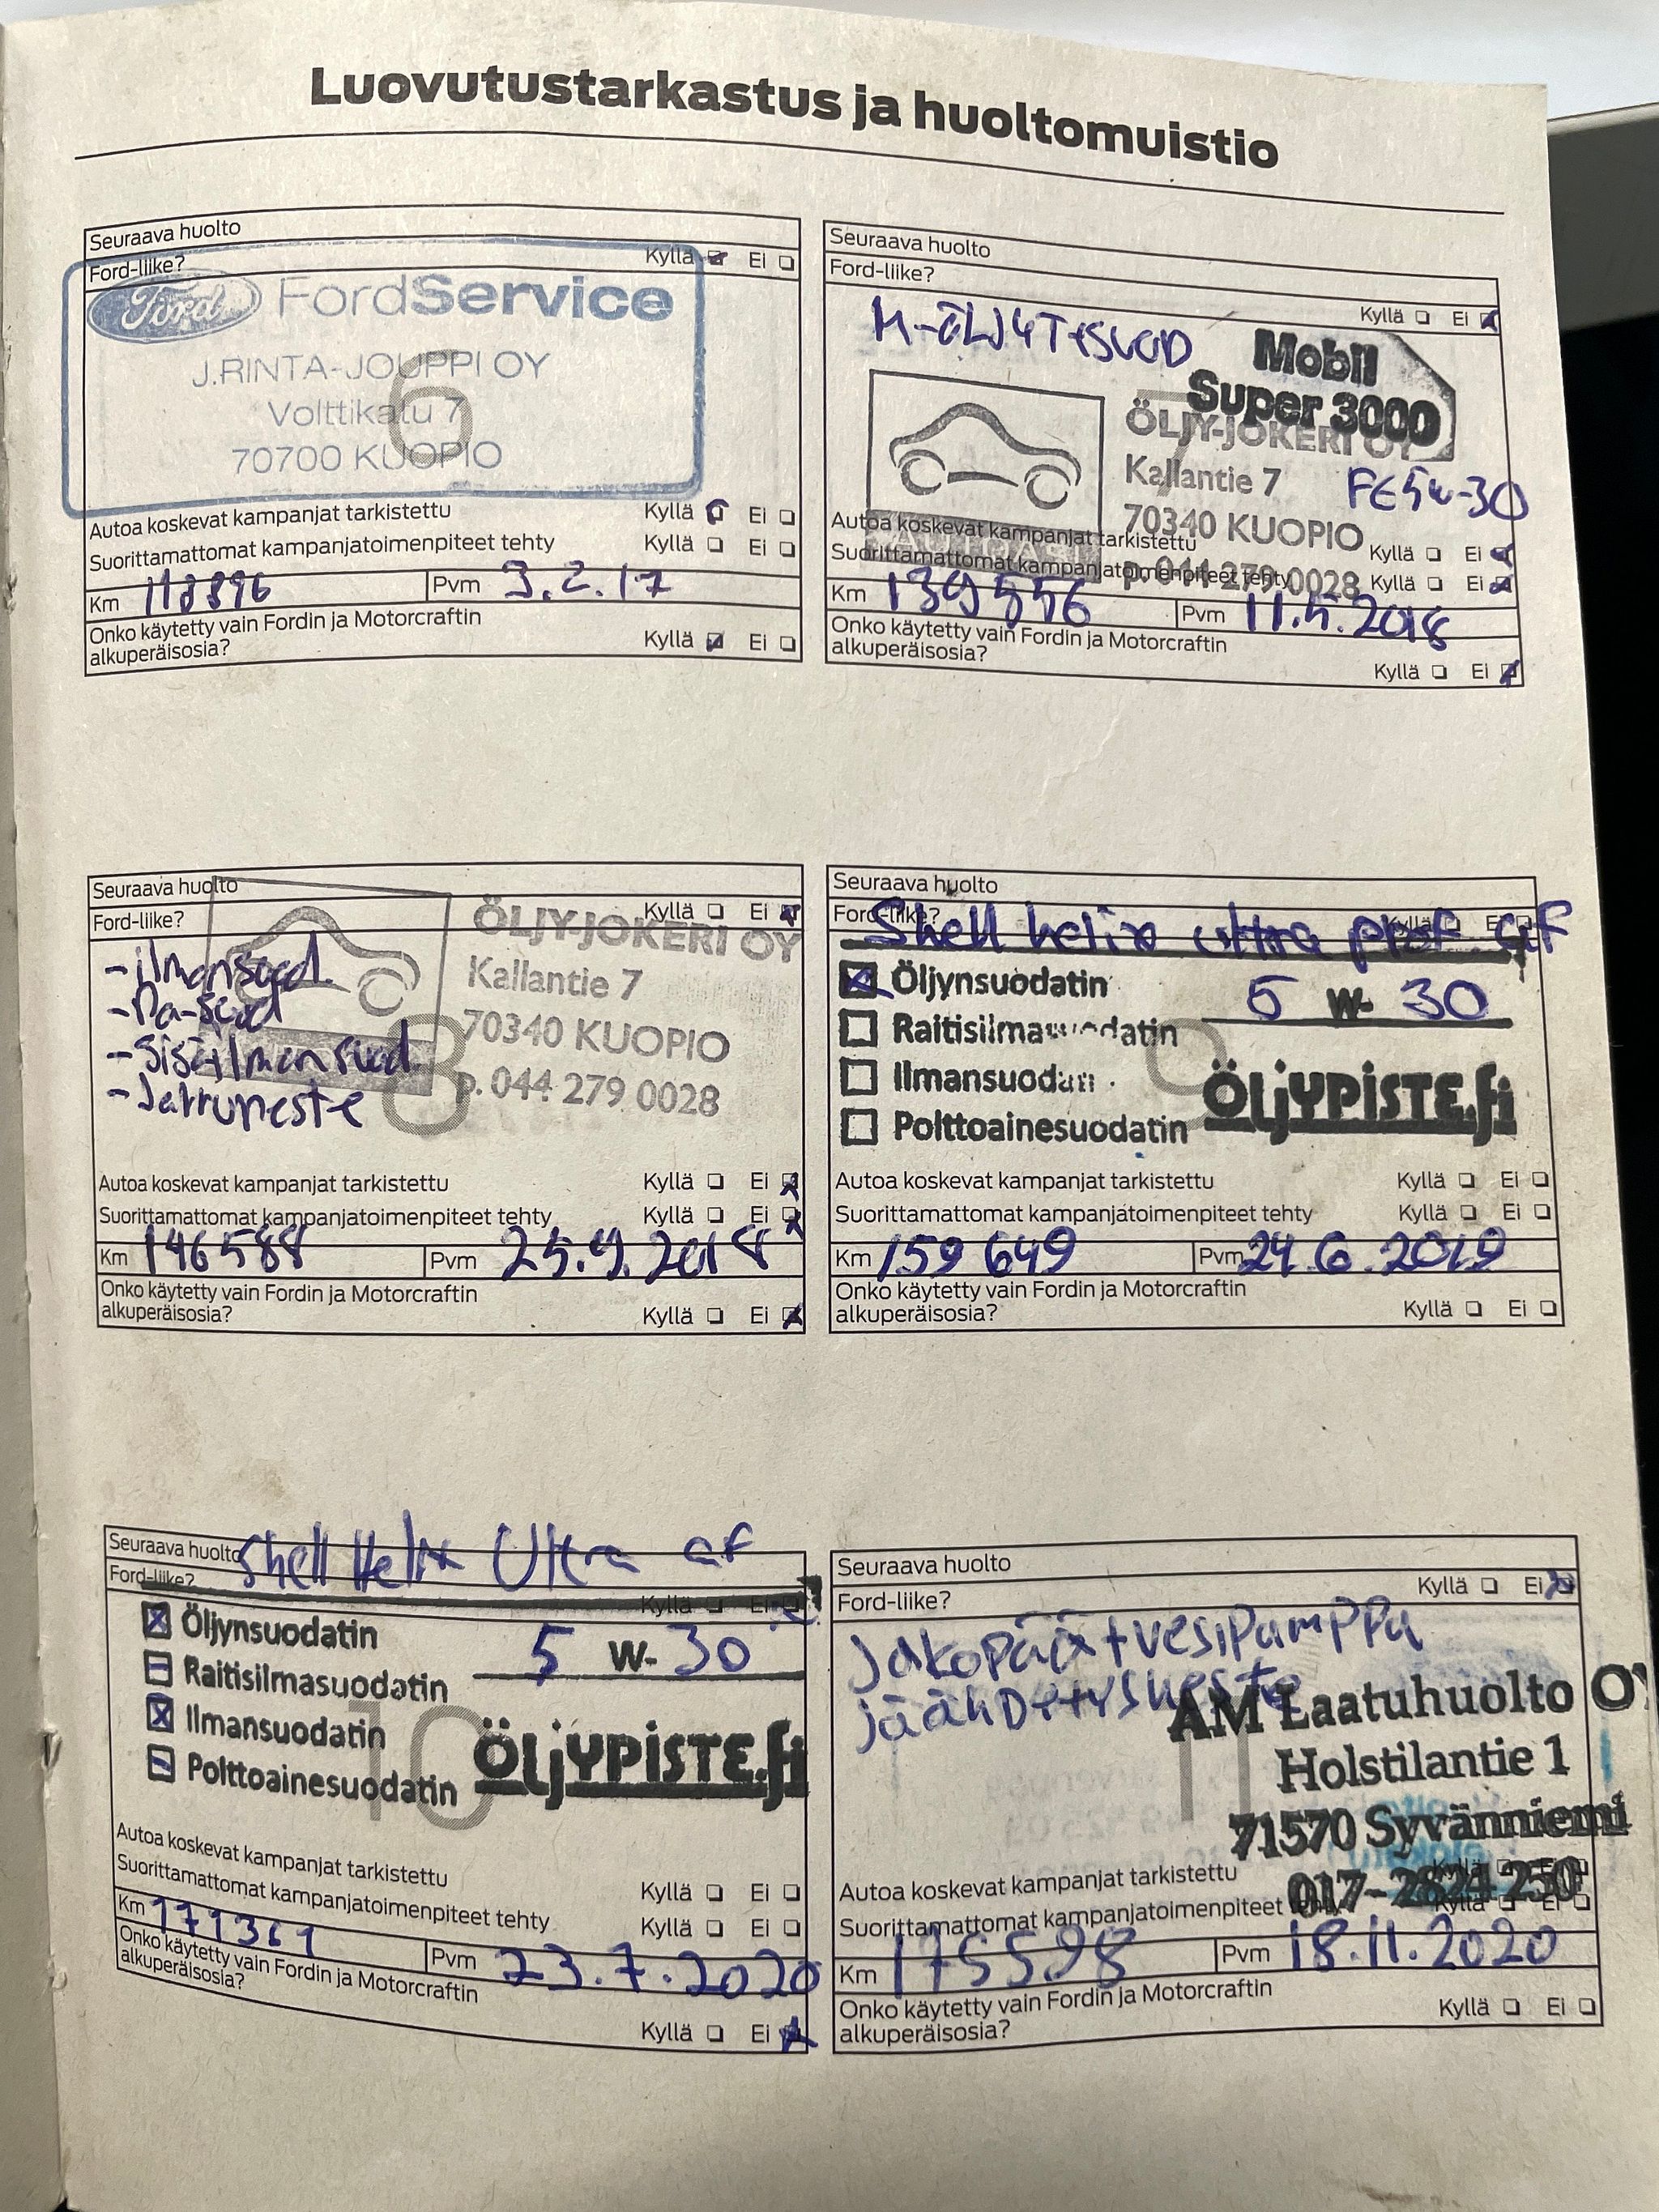 Luovutustarkastus ja huoltomuistio
Seuraava huolto
Ford-liike? Kyllä Ei
Ford FordService
J.RINTA-JOUPPI OY
6
Volttikatu 7
70700 KUOPIO
Autoa koskevat kampanjat tarkistettu Kyllä Ei
Suorittamattomat kampanjatoimenpiteet tehty Kyllä Ei
Km Pvm 3.2.17
Onko käytetty vain Fordin ja Motorcraftin
alkuperäisosia? Kyllä Ei
Seuraava huolto
Ford-liike?
Kyllä Ei
M-ÖLJY+SUOD
Mobil
Super 3000
7
ÖLJY-JOKERI OY
Kallantie 7
FE 5w-30
70340 KUOPIO
Autoa koskevat kampanjat tarkistettu Kyllä Ei
Suorittamattomat kampanjatoimenpiteet tehty Kyllä Ei
p. 044 279 0028
Km 139556 Pvm 11.5.2018
Onko käytetty vain Fordin ja Motorcraftin
alkuperäisosia?
Kyllä Ei
Seuraava huolto
Ford-liike? Kyllä Ei
ÖLJY-JOKERI OY
Kallantie 7
70340 KUOPIO
p. 044 279 0028
8
-ilmansuod.
-Pa-suod
-Sisäilmansuod.
-Jarruneste
Autoa koskevat kampanjat tarkistettu Kyllä Ei
Suorittamattomat kampanjatoimenpiteet tehty Kyllä Ei
Km 146588 Pvm 25.9.2018
Onko käytetty vain Fordin ja Motorcraftin
alkuperäisosia? Kyllä Ei
Seuraava huolto
Ford-liike? Kyllä Ei
Shell helix ultra prof af
Öljynsuodatin 5 W- 30
Raitisilmasuodatin
9
Ilmansuodatin
ÖLJYPISTE.fi
Polttoainesuodatin
Autoa koskevat kampanjat tarkistettu Kyllä Ei
Suorittamattomat kampanjatoimenpiteet tehty Kyllä Ei
Km 159 649 Pvm 24.6.2019
Onko käytetty vain Fordin ja Motorcraftin
alkuperäisosia? Kyllä Ei
Seuraava huolto
Shell Helix Ultra af
Ford-liike? Kyllä Ei
Öljynsuodatin 5 W- 30
Raitisilmasuodatin
Ilmansuodatin
10
ÖLJYPISTE.fi
Polttoainesuodatin
Autoa koskevat kampanjat tarkistettu Kyllä Ei
Suorittamattomat kampanjatoimenpiteet tehty Kyllä Ei
Km 171361 Pvm 23.7.2020
Onko käytetty vain Fordin ja Motorcraftin
alkuperäisosia?
Kyllä Ei
Seuraava huolto
Ford-liike? Kyllä Ei
Jakopää+vesipumppu
jäähdytysneste
11
AM Laatuhuolto OY
Holstilantie 1
71570 Syvänniemi
017-2824 250
Autoa koskevat kampanjat tarkistettu Kyllä Ei
Suorittamattomat kampanjatoimenpiteet tehty Kyllä Ei
Km 175598 Pvm 18.11.2020
Onko käytetty vain Fordin ja Motorcraftin
alkuperäisosia? Kyllä Ei